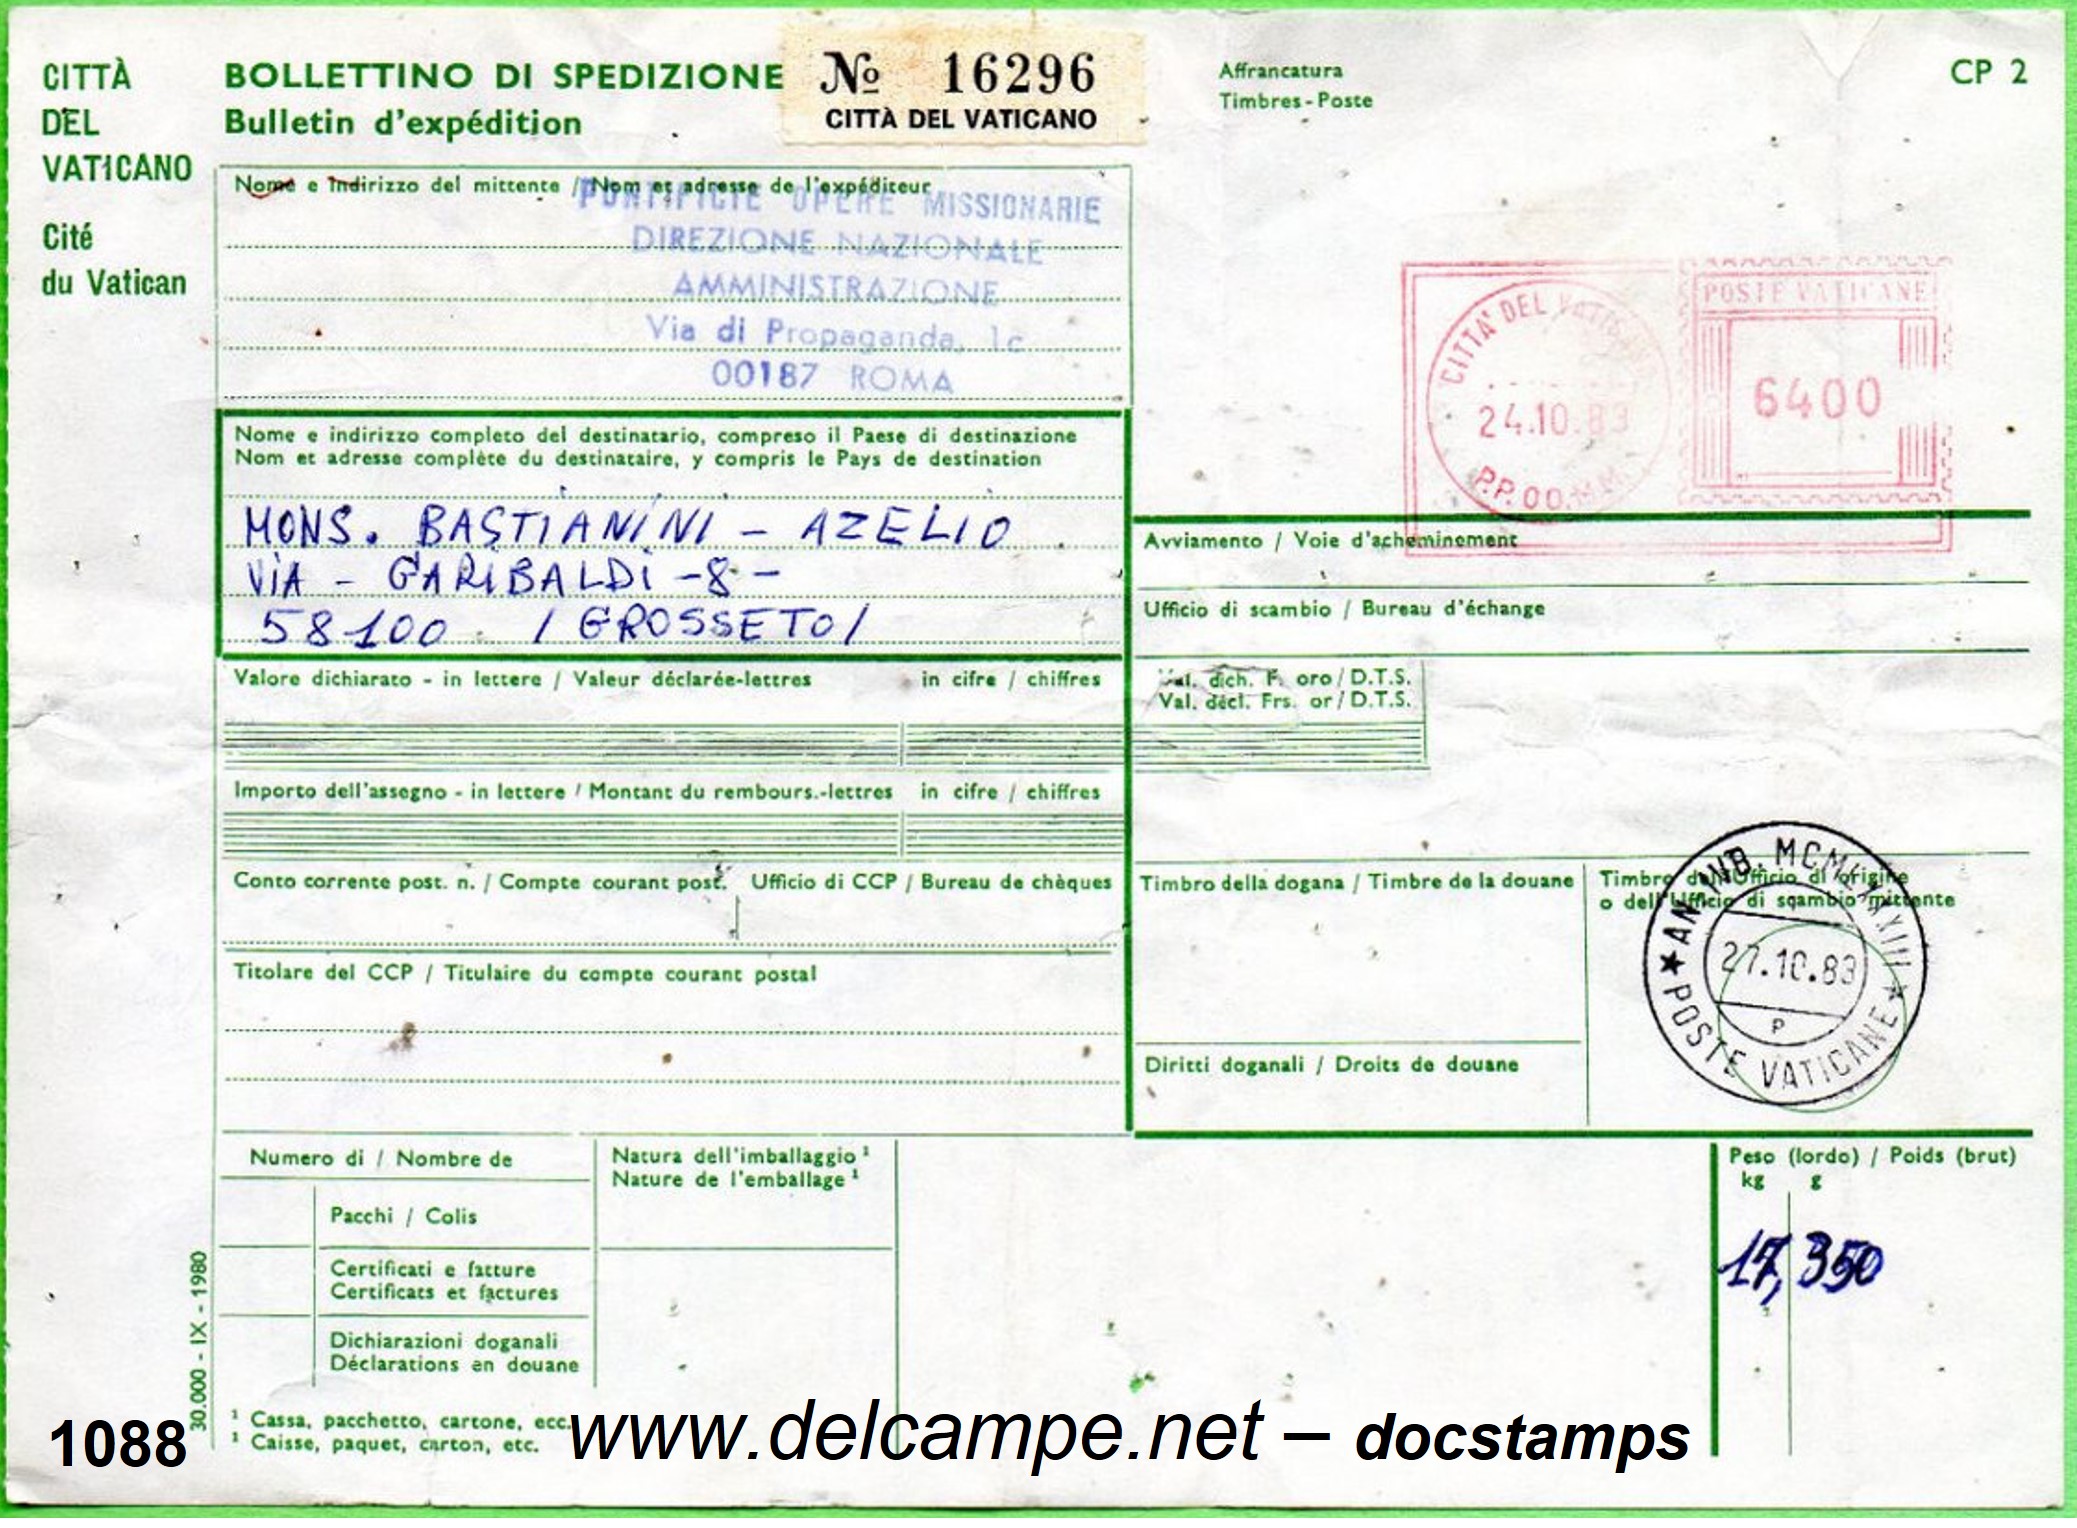 CITTÀ
DEL
VATICANO
Cité
du Vatican
BOLLETTINO DI SPEDIZIONE
Bulletin d'expédition
№ 16296
CITTÀ DEL VATICANO
Affrancatura
Timbres-Poste
CP 2
Nome e indirizzo del mittente / Nom et adresse de l'expéditeur
PONTIFICIE OPERE MISSIONARIE
DIREZIONE NAZIONALE
AMMINISTRAZIONE
Via di Propaganda, 1c
00187 ROMA
CITTA' DEL VATICANO
24.10.83
P.P.OO.MM.
POSTE VATICANE
6400
Nome e indirizzo completo del destinatario, compreso il Paese di destinazione
Nom et adresse complète du destinataire, y compris le Pays de destination
MONS. BASTIANINI - AZELIO
VIA - GARIBALDI -8-
58100 / GROSSETO/
Avviamento / Voie d'acheminement
Ufficio di scambio / Bureau d'échange
Valore dichiarato - in lettere / Valeur déclarée-lettres in cifre / chiffres
Val. dich. F. oro / D.T.S.
Val. décl. Frs. or / D.T.S.
Importo dell'assegno - in lettere / Montant du rembours.-lettres in cifre / chiffres
Conto corrente post. n. / Compte courant post. Ufficio di CCP / Bureau de chèques
Timbro della dogana / Timbre de la douane
Timbro dell'Ufficio di origine
o dell'Ufficio di scambio mittente
AN. IVB. MCMLXXXIII
27.10.83
P
POSTE VATICANE
Titolare del CCP / Titulaire du compte courant postal
Diritti doganali / Droits de douane
Numero di / Nombre de
Natura dell'imballaggio ¹
Nature de l'emballage ¹
Peso (lordo) / Poids (brut)
kg g
17,350
Pacchi / Colis
Certificati e fatture
Certificats et factures
Dichiarazioni doganali
Déclarations en douane
30.000 - IX - 1980
¹ Cassa, pacchetto, cartone, ecc.
¹ Caisse, paquet, carton, etc.
1088
www.delcampe.net – docstamps